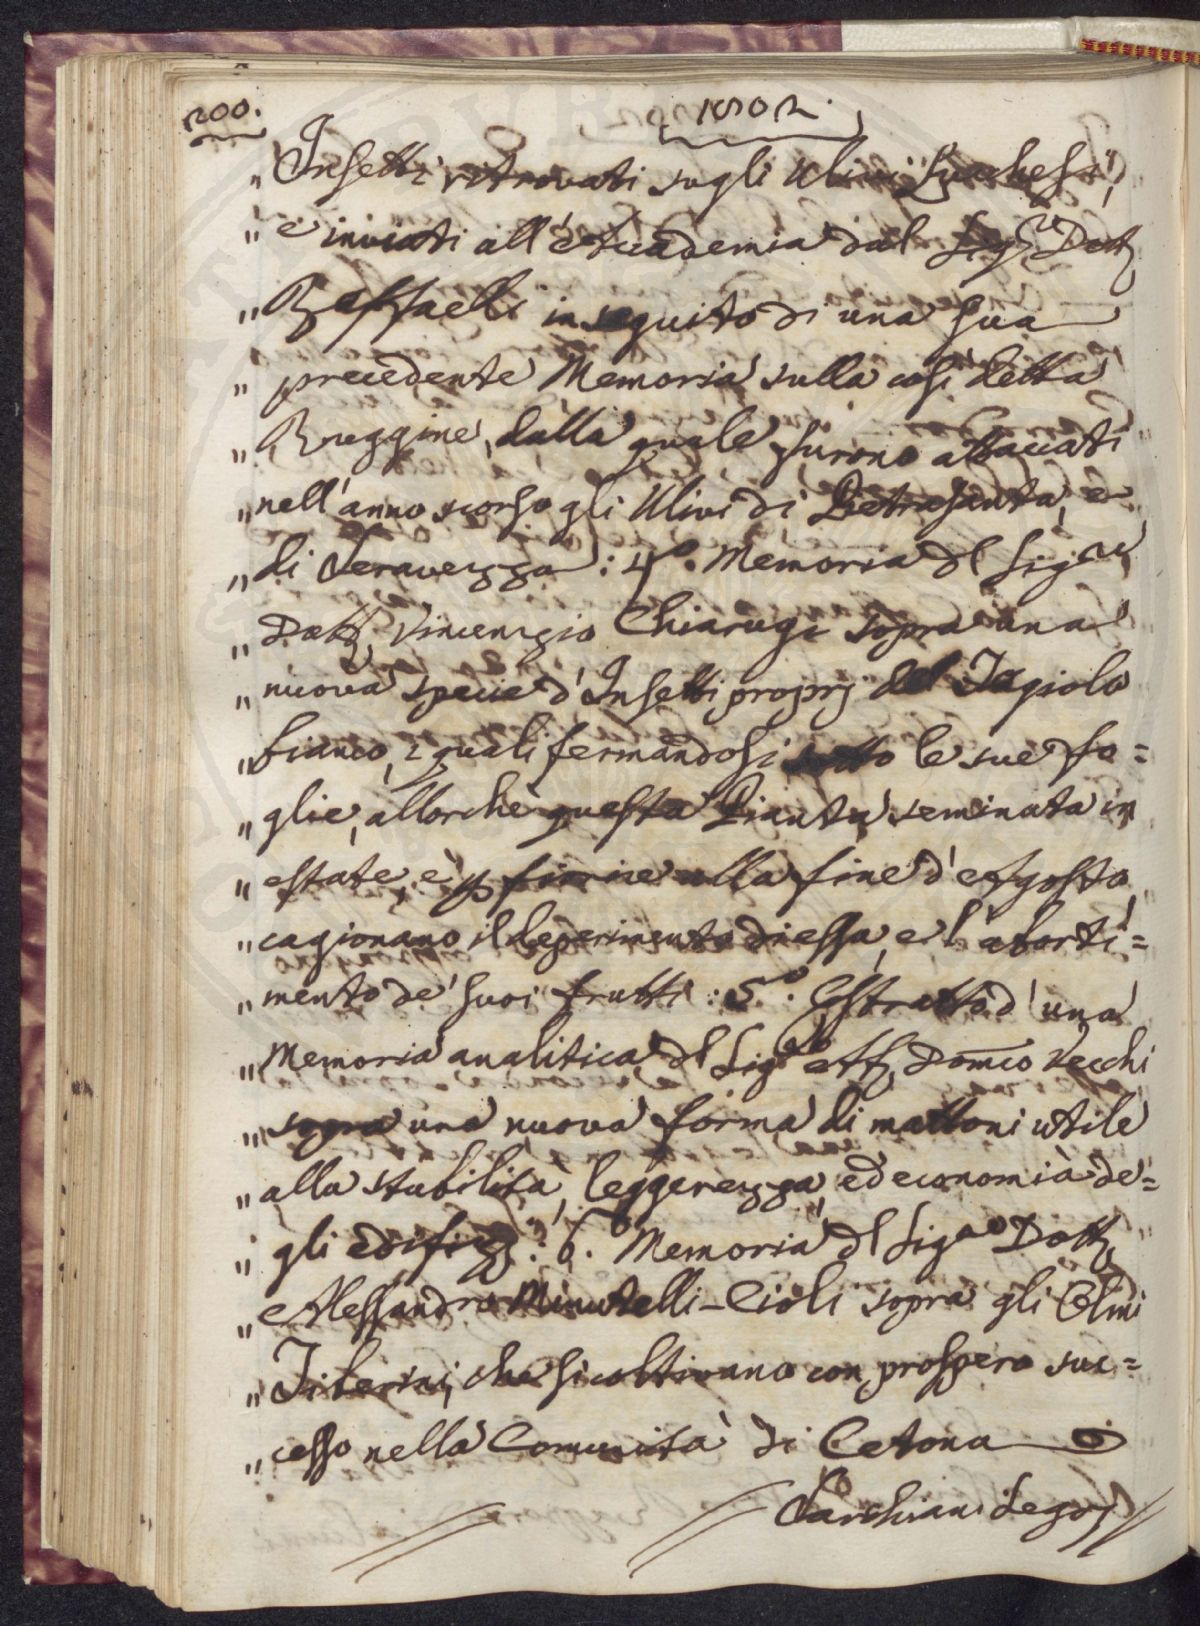 200.
1802.
" Insetti ritrovati sugli Ulivi Lucchesi,
" e inviati all'Accademia dal Sig.r Dott.
" Raffaelli in seguito di una sua
" precedente Memoria sulla così detta
" Ruggine, dalla quale furono attaccati
" nell'anno scorso gli Ulivi di Pietrasanta, e
" di Seravezza: 4.° Memoria del Sig.re
" Dott. Vincenzio Chiarugi sopra una
" nuova specie d'Insetti proprj del Fagiolo
" bianco, i quali fermandosi sotto le sue fo=
" glie, allorchè questa Pianta seminata in
" estate, è p fiorire alla fine d'Agosto,
" cagionano il deperimento di essa, e l'aborti=
" mento de' suoi frutti: 5.° Estratto d'una
" Memoria analitica del Sig.re Ab. Domco Vecchi
" sopra una nuova forma di mattoni utile
" alla stabilità, leggerezza, ed economia de=
" gli edifizj: 6.° Memoria del Sig.re Dott.
" Alessandro Minutelli-Cioli sopra gli Olmi
" Tiberini, che si coltivano con prospero suc=
" cesso nella Comunità di Cetona
Sarchiani Segr.